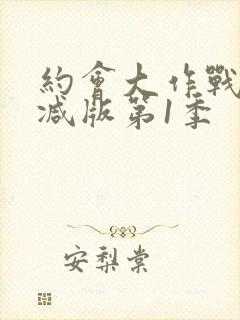 約會大作戰
減版第1季
安梨棠